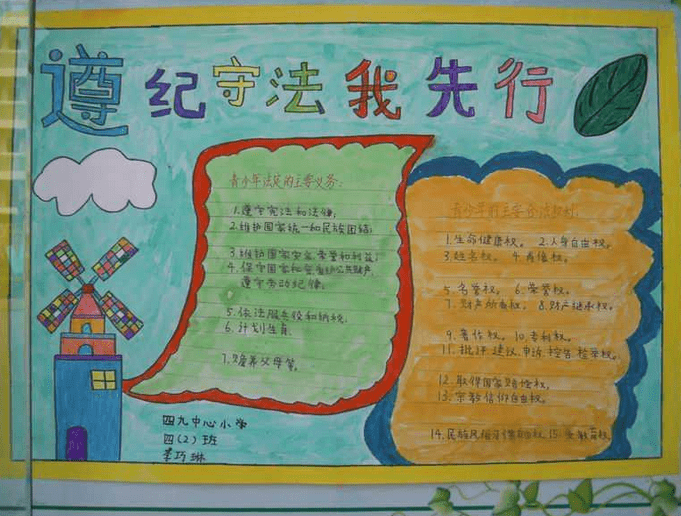 遵纪守法我先行
青少年法定的主要义务:
1.遵守宪法和法律;
2.维护国家统一和民族团结;
3.维护国家安全,荣誉和利益;
4.保守国家秘密,爱护公共财产,
遵守劳动纪律;
5.依法服兵役和纳税
6.计划生育
7.赡养父母等。
青少年的主要合法权利:
1.生命健康权。 2.人身自由权。
3.姓名权。 4.肖像权。
5.名誉权。 6.荣誉权。
7.财产所有权。 8.财产继承权。
9.著作权。 10.专利权。
11.批评.建议.申诉.控告.检举权。
12.取得国家赔偿权。
13.宗教信仰自由权。
14.民族风俗习惯自由权.15.受教育权。
四九中心小学
四(2)班
李巧琳